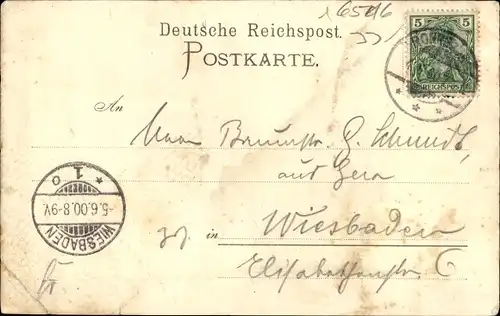 16516
33
Deutsche Reichspost.
POSTKARTE.
5 5
REICHSPOST
An
Herrn G. Schmidt,
aus Gera
in Wiesbaden
Elisabethenstr 6
WIESBADEN
-5.6.00.8-9V.
* 1 o